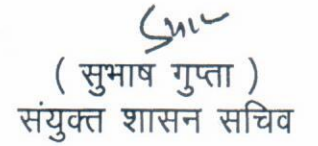 ( सुभाष गुप्ता )
संयुक्त शासन सचिव